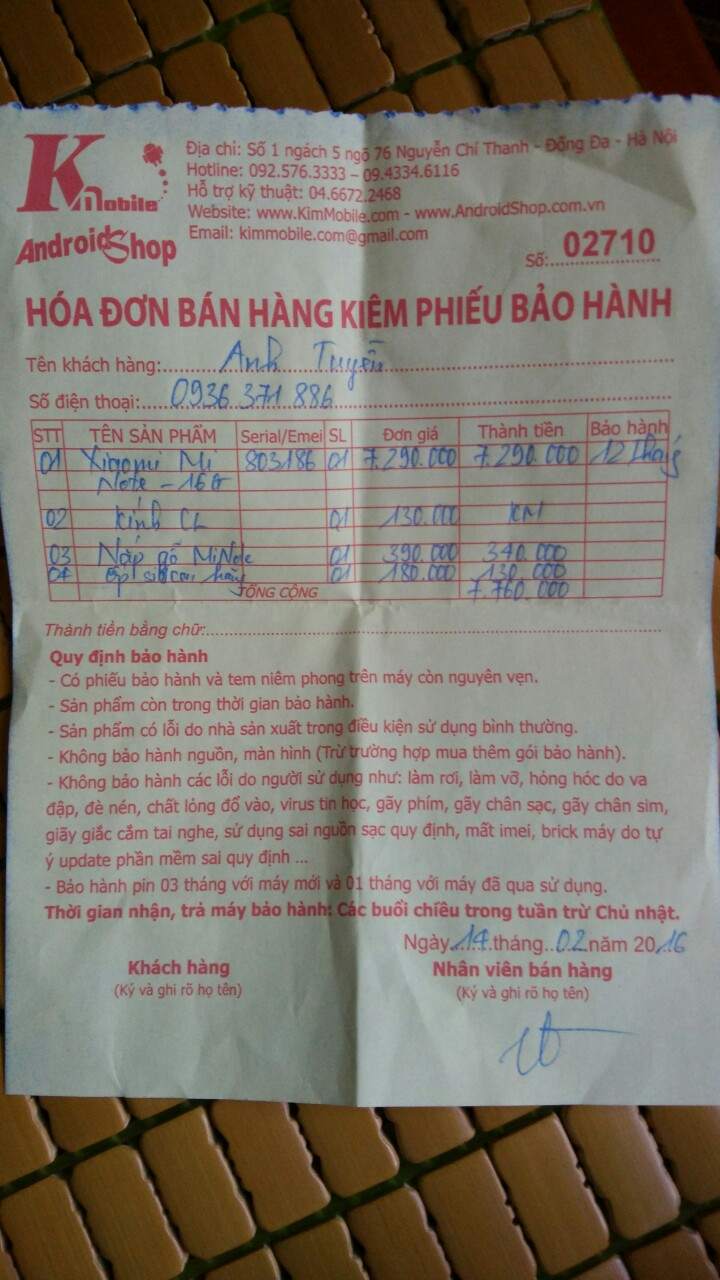 K Mobile
AndroidShop
Địa chỉ: Số 1 ngách 5 ngõ 76 Nguyễn Chí Thanh - Đống Đa - Hà Nội
Hotline: 092.576.3333 – 09.4334.6116
Hỗ trợ kỹ thuật: 04.6672.2468
Website: www.KimMobile.com - www.AndroidShop.com.vn
Email: kimmobile.com@gmail.com
Số: 02710
HÓA ĐƠN BÁN HÀNG KIÊM PHIẾU BẢO HÀNH
Tên khách hàng: Anh Tuyến
Số điện thoại: 0936 371 886
STT TÊN SẢN PHẨM Serial/Emei SL Đơn giá Thành tiền Bảo hành
01 Xiaomi Mi 803186 01 7.290.000 7.290.000 12 tháng
Note - 16G
02 Kính CL 01 130.000 KM
03 Nắp gỗ MiNote 01 390.000 340.000
04 Ốp silicon 01 180.000 130.000
TỔNG CỘNG 7.760.000
Thành tiền bằng chữ:
Quy định bảo hành
- Có phiếu bảo hành và tem niêm phong trên máy còn nguyên vẹn.
- Sản phẩm còn trong thời gian bảo hành.
- Sản phẩm có lỗi do nhà sản xuất trong điều kiện sử dụng bình thường.
- Không bảo hành nguồn, màn hình (Trừ trường hợp mua thêm gói bảo hành).
- Không bảo hành các lỗi do người sử dụng như: làm rơi, làm vỡ, hỏng hóc do va
đập, đè nén, chất lỏng đổ vào, virus tin học, gãy phím, gãy chân sạc, gãy chân sim,
giãy giắc cắm tai nghe, sử dụng sai nguồn sạc quy định, mất imei, brick máy do tự
ý update phần mềm sai quy định ...
- Bảo hành pin 03 tháng với máy mới và 01 tháng với máy đã qua sử dụng.
Thời gian nhận, trả máy bảo hành: Các buổi chiều trong tuần trừ Chủ nhật.
Ngày 14 tháng 02 năm 2016
Khách hàng Nhân viên bán hàng
(Ký và ghi rõ họ tên) (Ký và ghi rõ họ tên)